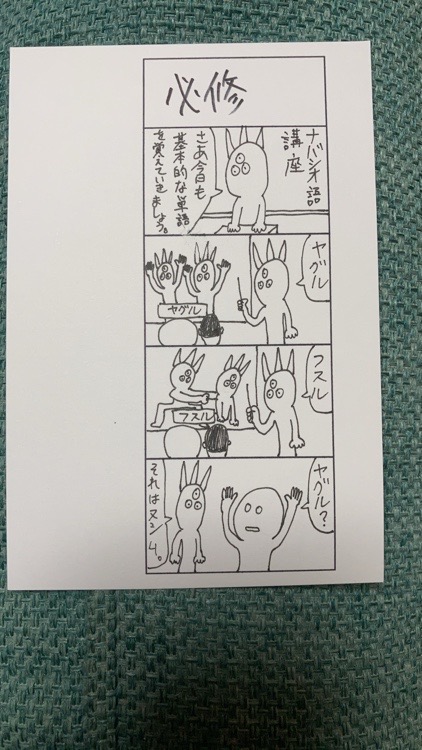 必修
ナバシオ語
講座
さあ今日も
基本的な単語
を覚えていきましょう。
ヤグル
ヤグル
フスル
フスル
ヤグル?
それはヌンム。